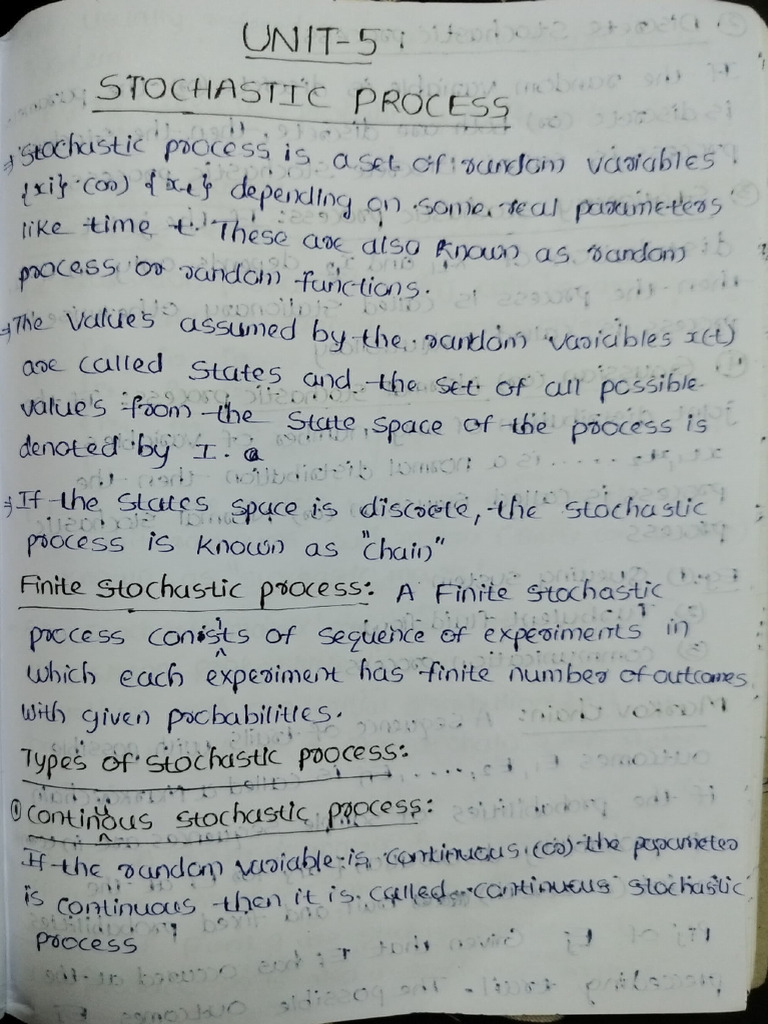 UNIT-5:
STOCHASTIC PROCESS
⇒ Stochastic process is a set of random variables
{xi} (or) {xt} depending on some real parameters
like time t. These are also known as random
process or random functions.
⇒ The value's assumed by the random variables x(t)
are called States and the set of all possible
value's from the State space of the process is
denoted by I.
⇒ If the states space is discrete, the stochastic
process is known as "chain"
Finite stochastic process: A Finite stochastic
process consists of sequence of experiments in
which each experiment has finite number of outcomes
with given probabilities.
Types of stochastic process:
① Continuous stochastic process:
If the random variable is continuous (or) the parameter
is continuous then it is called continuous stochastic
process